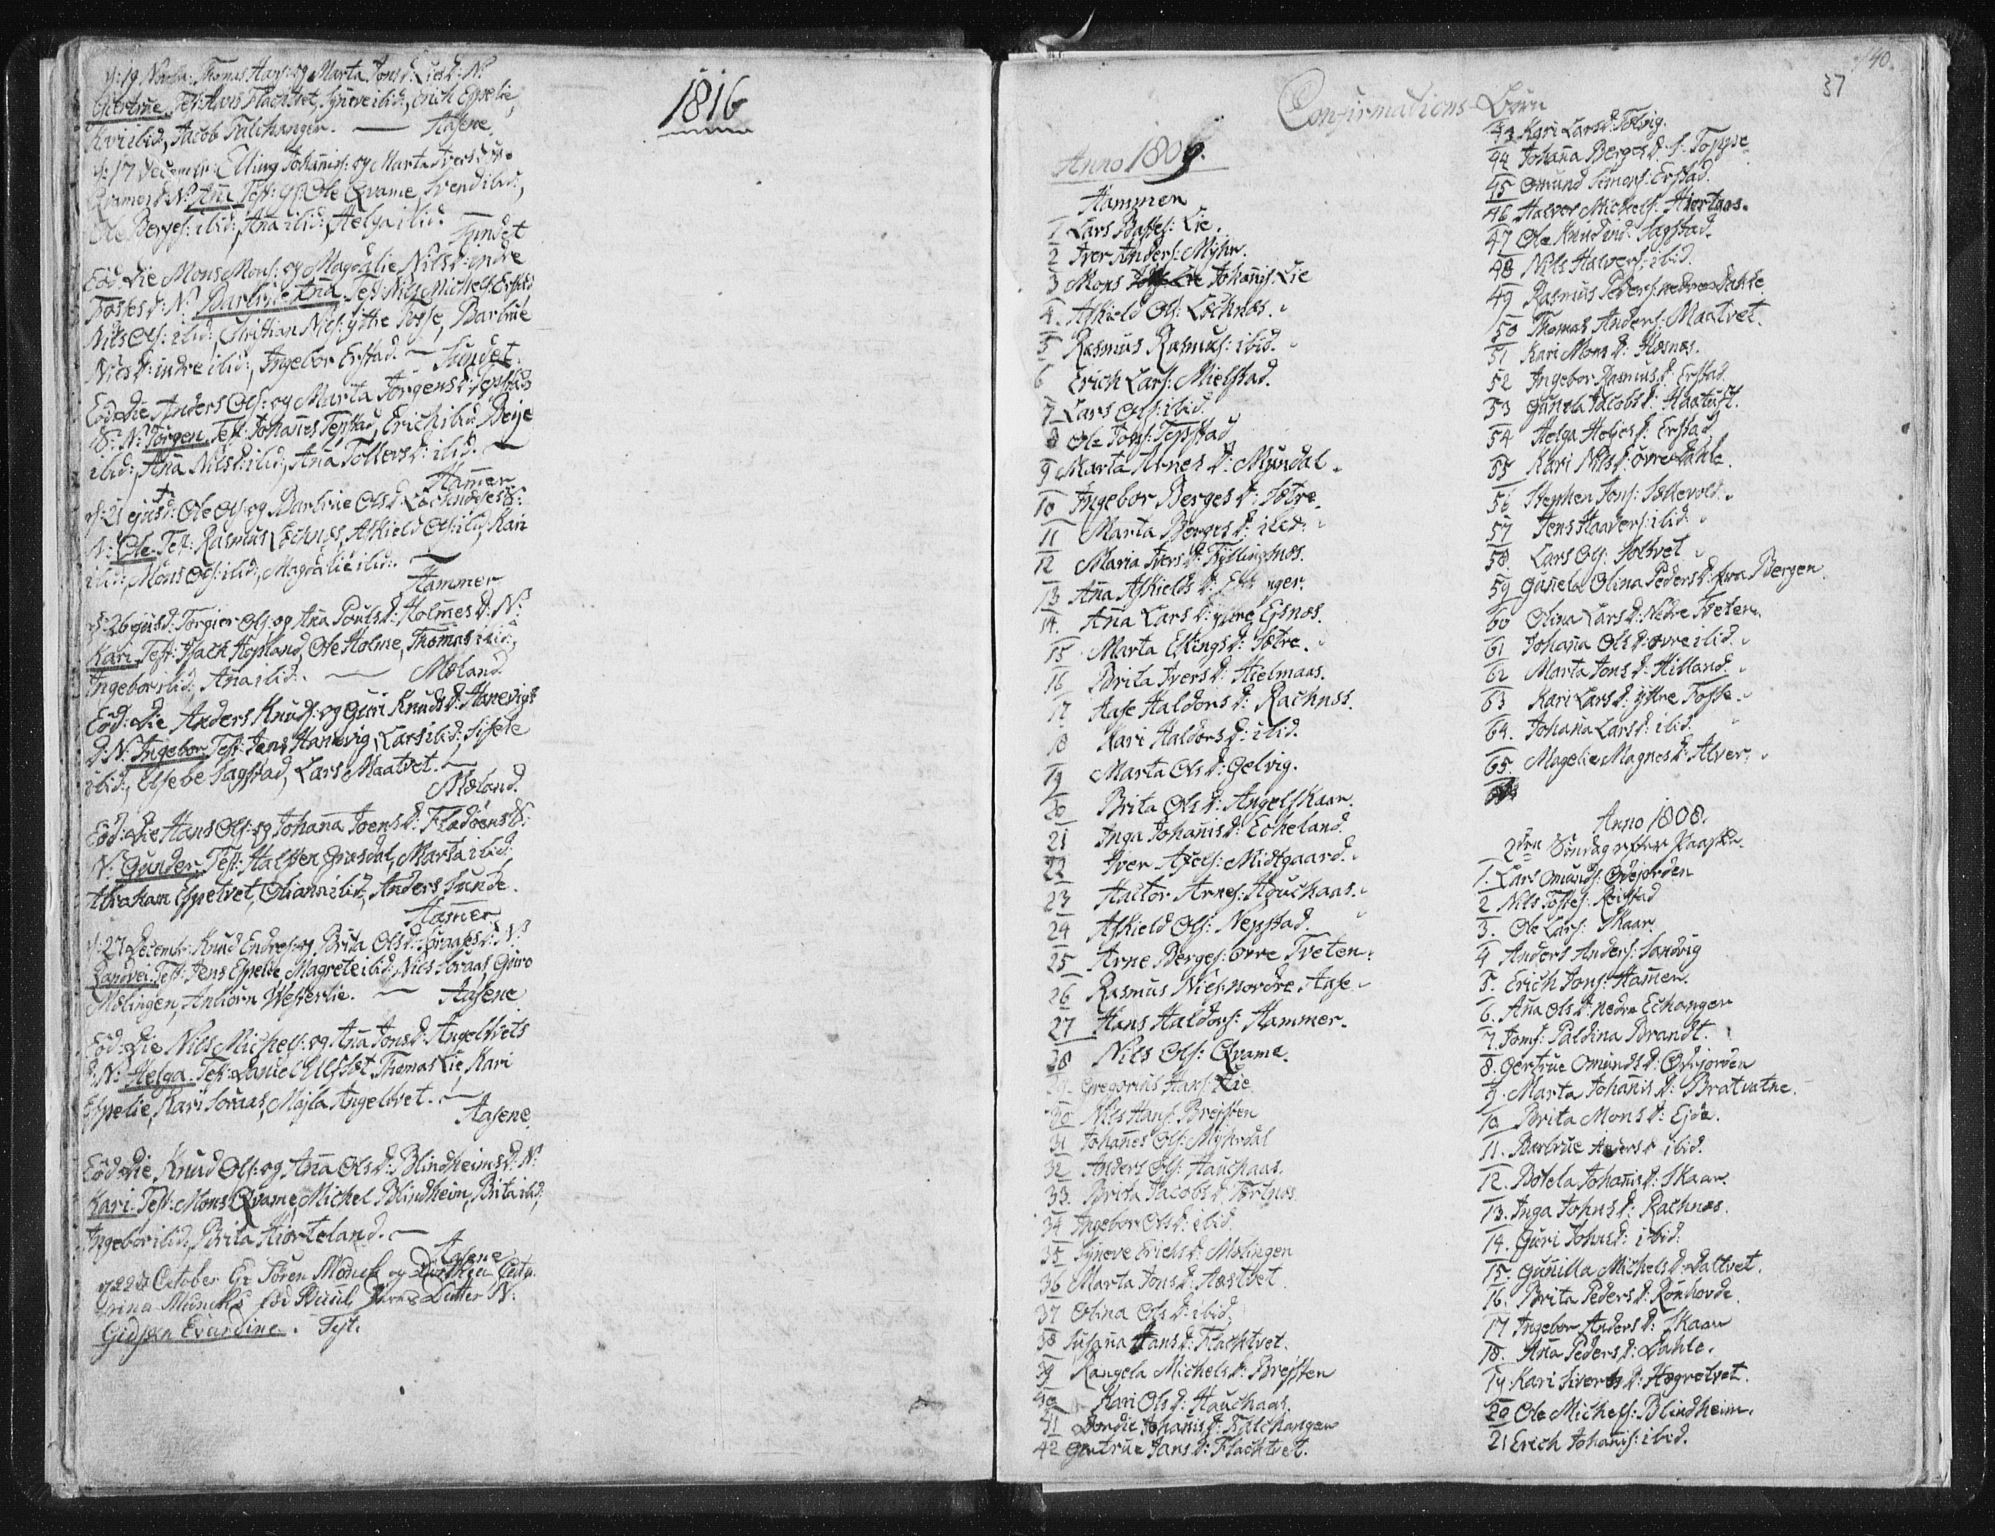 d: 19 Novbr: Thomas Hans: og Marta Jons d: Lies d: N:
Giertrue. Test: Flachtvet, Synneve ibid:, Erich Espelie,
Kari ibid:, Jacob Falchanger. — Aasene.
d: 17 December: Elling Johanis: og Marta Ivers d:
Qvames d: N: Ana Test: Ole Qvame, Svend ibid:,
Ole Berges: ibid:, Ana ibid:, Helga ibid:
Sundet
Eod: Die Mons Mons: og Magdalie Nils d: indre
Fosses d: N: Barbrue Ana Test: Nils Michels: Erstad
Nils Ols: ibid:, Christian Nils: ytre Fosse, Barbrue
Nils d: indre ibid:, Ingebor Erstad. — Sundet.
Eod: Die Anders Ols: og Marta Jørgens d: Tepstads
S: N: Jørgen. Test: Johanes Tepstad, Erich ibid: Beije
ibid:, Ana Nils d: ibid:, Ana Tollevs d: ibid: —
Hamer
d: 21 ejusd: Ole Ols: og Barbrue Ols d: Lochnæses S:
N: Ole. Test: Rasmus Lochnæs, Askield Ols: ibid: Kari
ibid:, Mons Ols: ibid:, Magdalie ibid: —
Hammer
d: 26 ejusd: Torgier Ols: og Ana Pouls d: Holmes d: N:
Kari. Test: Isach Hopland, Ole Holme, Thomas ibid:,
Ingebor ibid:, Ana ibid:. — Mæland.
Eod: Die Anders Knuds: og Guri Knuds d: Hanevigs
d: N: Ingebor, Test: Jens Hanevig, Lars ibid: Sissele
ibid:, Elsebe Sagstad, Lars Maatvet. —
Mæland.
Eod: Die Hans Ols: og Johana Joens d: Fladøens S:
N: Gunder. Test: Halsten Græsdal, Marta ibid:
Abraham Espetvet, ibid:, Anders Sunde.
Hamer
d: 27 Decembr: Knud Endres: og Brita Ols d: Soraas d: N:
Randvei. Test: Jens Espelie Magrete ibid:, Nils Soraas, Guro
Mælingen, Anbiørn Westerlie. — Aasene
Eod: Die Nils Michels: og Ana Jons d: Angeltvets
d: N: Helga. Test: Daniel Thomas Lie, Kari
Espelie, Kari Soraas, Majla Angeltvet. —
Aasene
Eod: Die Knud Ols: og Ana Ols d: Blindheims d: N:
Kari. Test: Mons Qvame, Michel Blindheim, Brita ibid:,
Ingebor ibid:, Brita Hiorteland. —
Aasene
d 22d October Søren Munch og Dorthea Catha
rina Munchs fød Buul Datter N:
Evardine. Test.
1816
140.
37
Confirmations Børn
Anno 1806.
Hammer
1 Lars Basses: Lie.
2 Iver Anders: Myhr.
3 Mons Johanis: Lie
4. Askield Ols: Lochnæs.
5 Rasmus Rasmus: ibid.
6 Erich Lars: Mielstad.
7 Lars Ols: ibid.
8 Ole Jons: Tepstad
9 Marta Arnes d: Myndal.
10 Ingebor Berges d: Sætre.
11 Marta Berges d: ibid:
12 Maria Ivers d: Fyllingsnæs.
13 Ana Askields d:
14. Ana Lars d: ytre Eisnæs.
15 Marta Ellings d: Sætre.
16 Brita Ivers d: Hielmaas.
17 Aase Haldors d: Rachnæs.
18 Kari Haldors d: ibid.
19 Marta Ols d: Gelvig.
20 Brita Ols d: Angelskaar.
21 Inga Johanis d: Echeland.
22 Iver Axels: Midtgaard.
23 Haltor Arnes: Houchaas.
24 Askield Ols: Nepstad.
25 Arne Berges: øvre Tveten.
26 Rasmus Niels: nordre Aase.
27 Hans Haldors: Hammer.
28 Nils Ols: Qvame.
29. Gregorius Hans: Lie
30 Nils Hans: Brejsten
31 Johanes Ols: Myhrdal
32 Anders Ols: Hauchaas.
33. Brita Jacobs d: Tertnæs.
34 Ingebor Ols d: ibid.
35 Syneve Erichs d: Mælingen
36 Marta Jons d: Aastvet
37 Olina Ols d: ibid.
38 Susana Hans d: Flachtvet.
39 Rangela Michels d: Brejsten
40 Kari Ols d: Hauchaas.
41 Dordie Johanis d: Falchanger
42 Giertrue Jans d: Flachtvet.
43 Kari Lars d: Tolvig.
44 Johana Berges d: Tosse
45 Omund Simons: Erstad.
46 Halvor Michels: Hiertaas.
47 Ole Knuds: Sagstad.
48 Nils Halvers: ibid.
49 Rasmus Peders: nedre Dahle
50 Thomas Anders: Maatvet.
51 Kari Mons d: Hæsnæs.
52 Ingebor Rasmus d: Erstad
53 Gunela Jacobs d: Haatuft.
54 Helga Helges d: Erstad
55 Kari Nils d: øvre Dahle.
56 Stephen Jons: Sællevold.
57 Jens Haavers: ibid.
58. Lars Ols: Soltvet
59 Gunela Olina Peders d: fra Bergen.
60 Olina Lars d: Nedre Tveten.
61 Johana Ols d: øvre ibid.
62 Marta Jons d: Hilland.
63 Kari Lars d: yttre Fosse.
64. Johana Lars d: ibid.
65. Magelie Magnes d: Alver.
Anno 1808.
2den Søndag efter Paaske.
1. Lars Omunds: Odejorden
2 Nils Tostes: Reistad
3. Ole Lars: Skaar
4 Anders Anders: Sandvig
5. Erich Jons: Hamer.
6. Ana Ols d: nedre Echanger
7. Jomf: Paldina Brandt.
8. Gertrue Omunds d: Odejorden
9. Marta Johanis d: Bratvatne.
10 Brita Mons d: Ejde.
11. Barbrue Anders d: ibid.
12. Botela Johanis d: Skaar.
13. Inga Johns d: Rachnæs.
14. Guri Johns d: ibid.
15. Gunilla Michels d: Daltvet.
16. Brita Peders d: Ronhovde.
17 Ingebor Anders d: Skaar
18. Ana Peders d: Dahle.
19. Kari Siverts d: Hægretvet.
20 Ole Michels: Blindheim.
21 Erich Johanis: ibid.